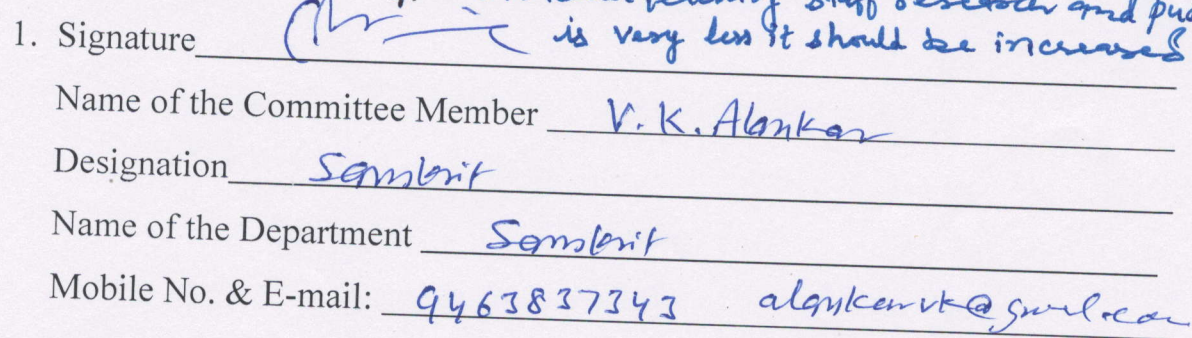 staff research and
1. Signature is very less it should be increased
Name of the Committee Member V. K. Alankar
Designation Sanskrit
Name of the Department Sanskrit
Mobile No. & E-mail: 9463837343 alankarvk@gmail.com